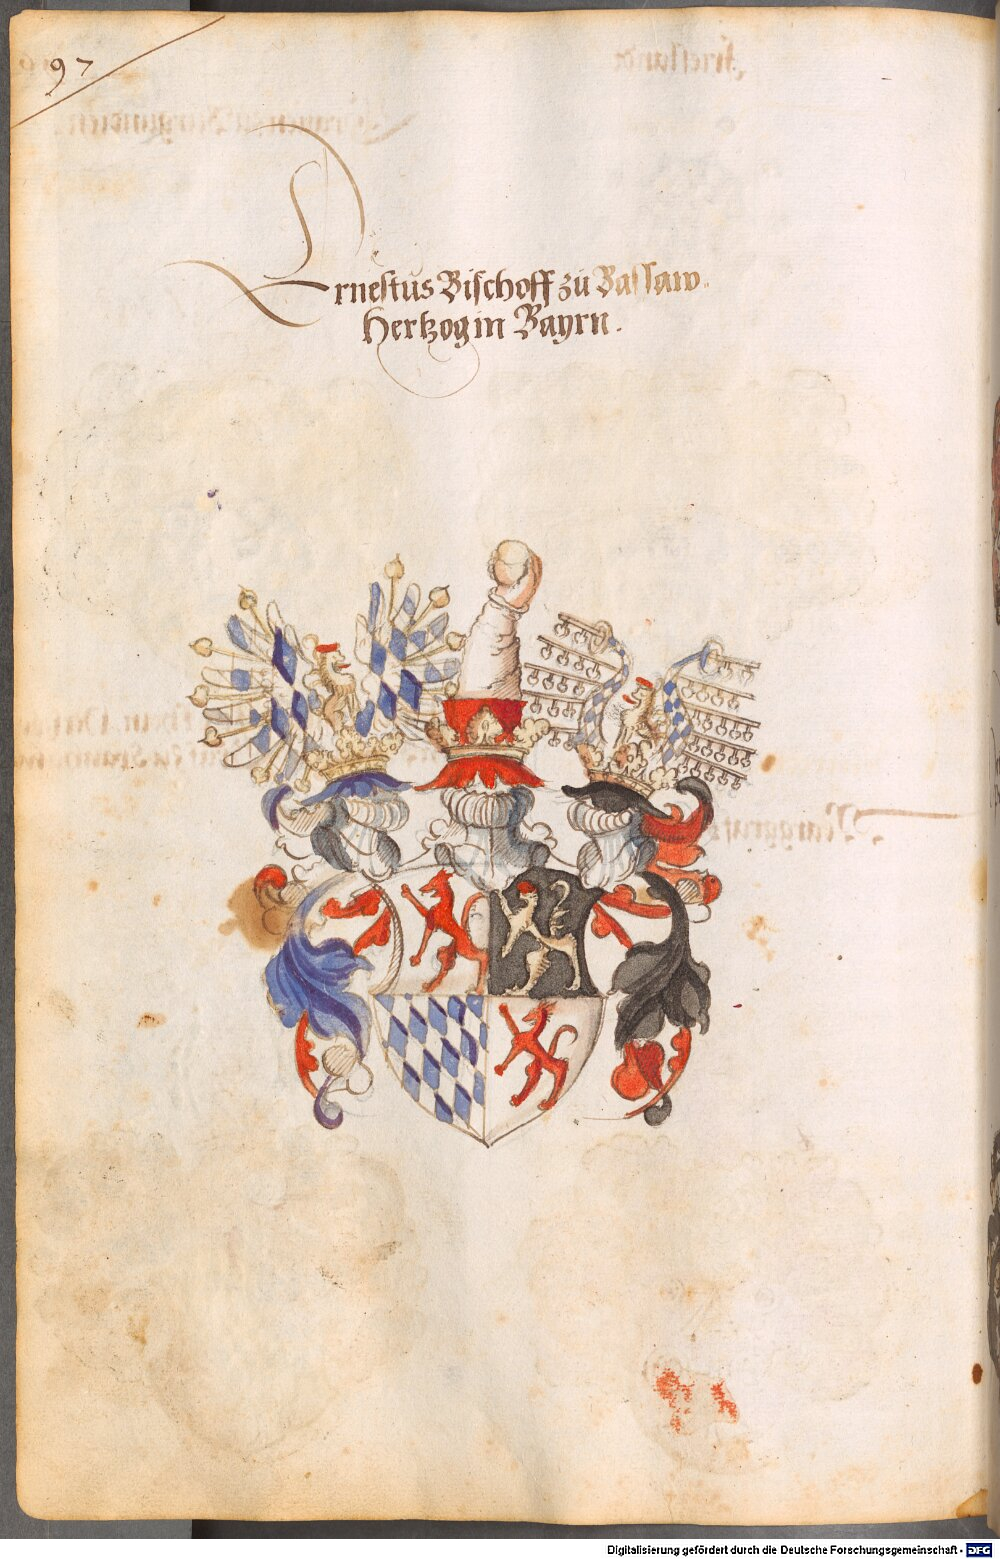 97
Ernestus Bischoff zu Bassaw.
Hertzog in Bayrn.
Digitalisierung gefördert durch die Deutsche Forschungsgemeinschaft - DFG